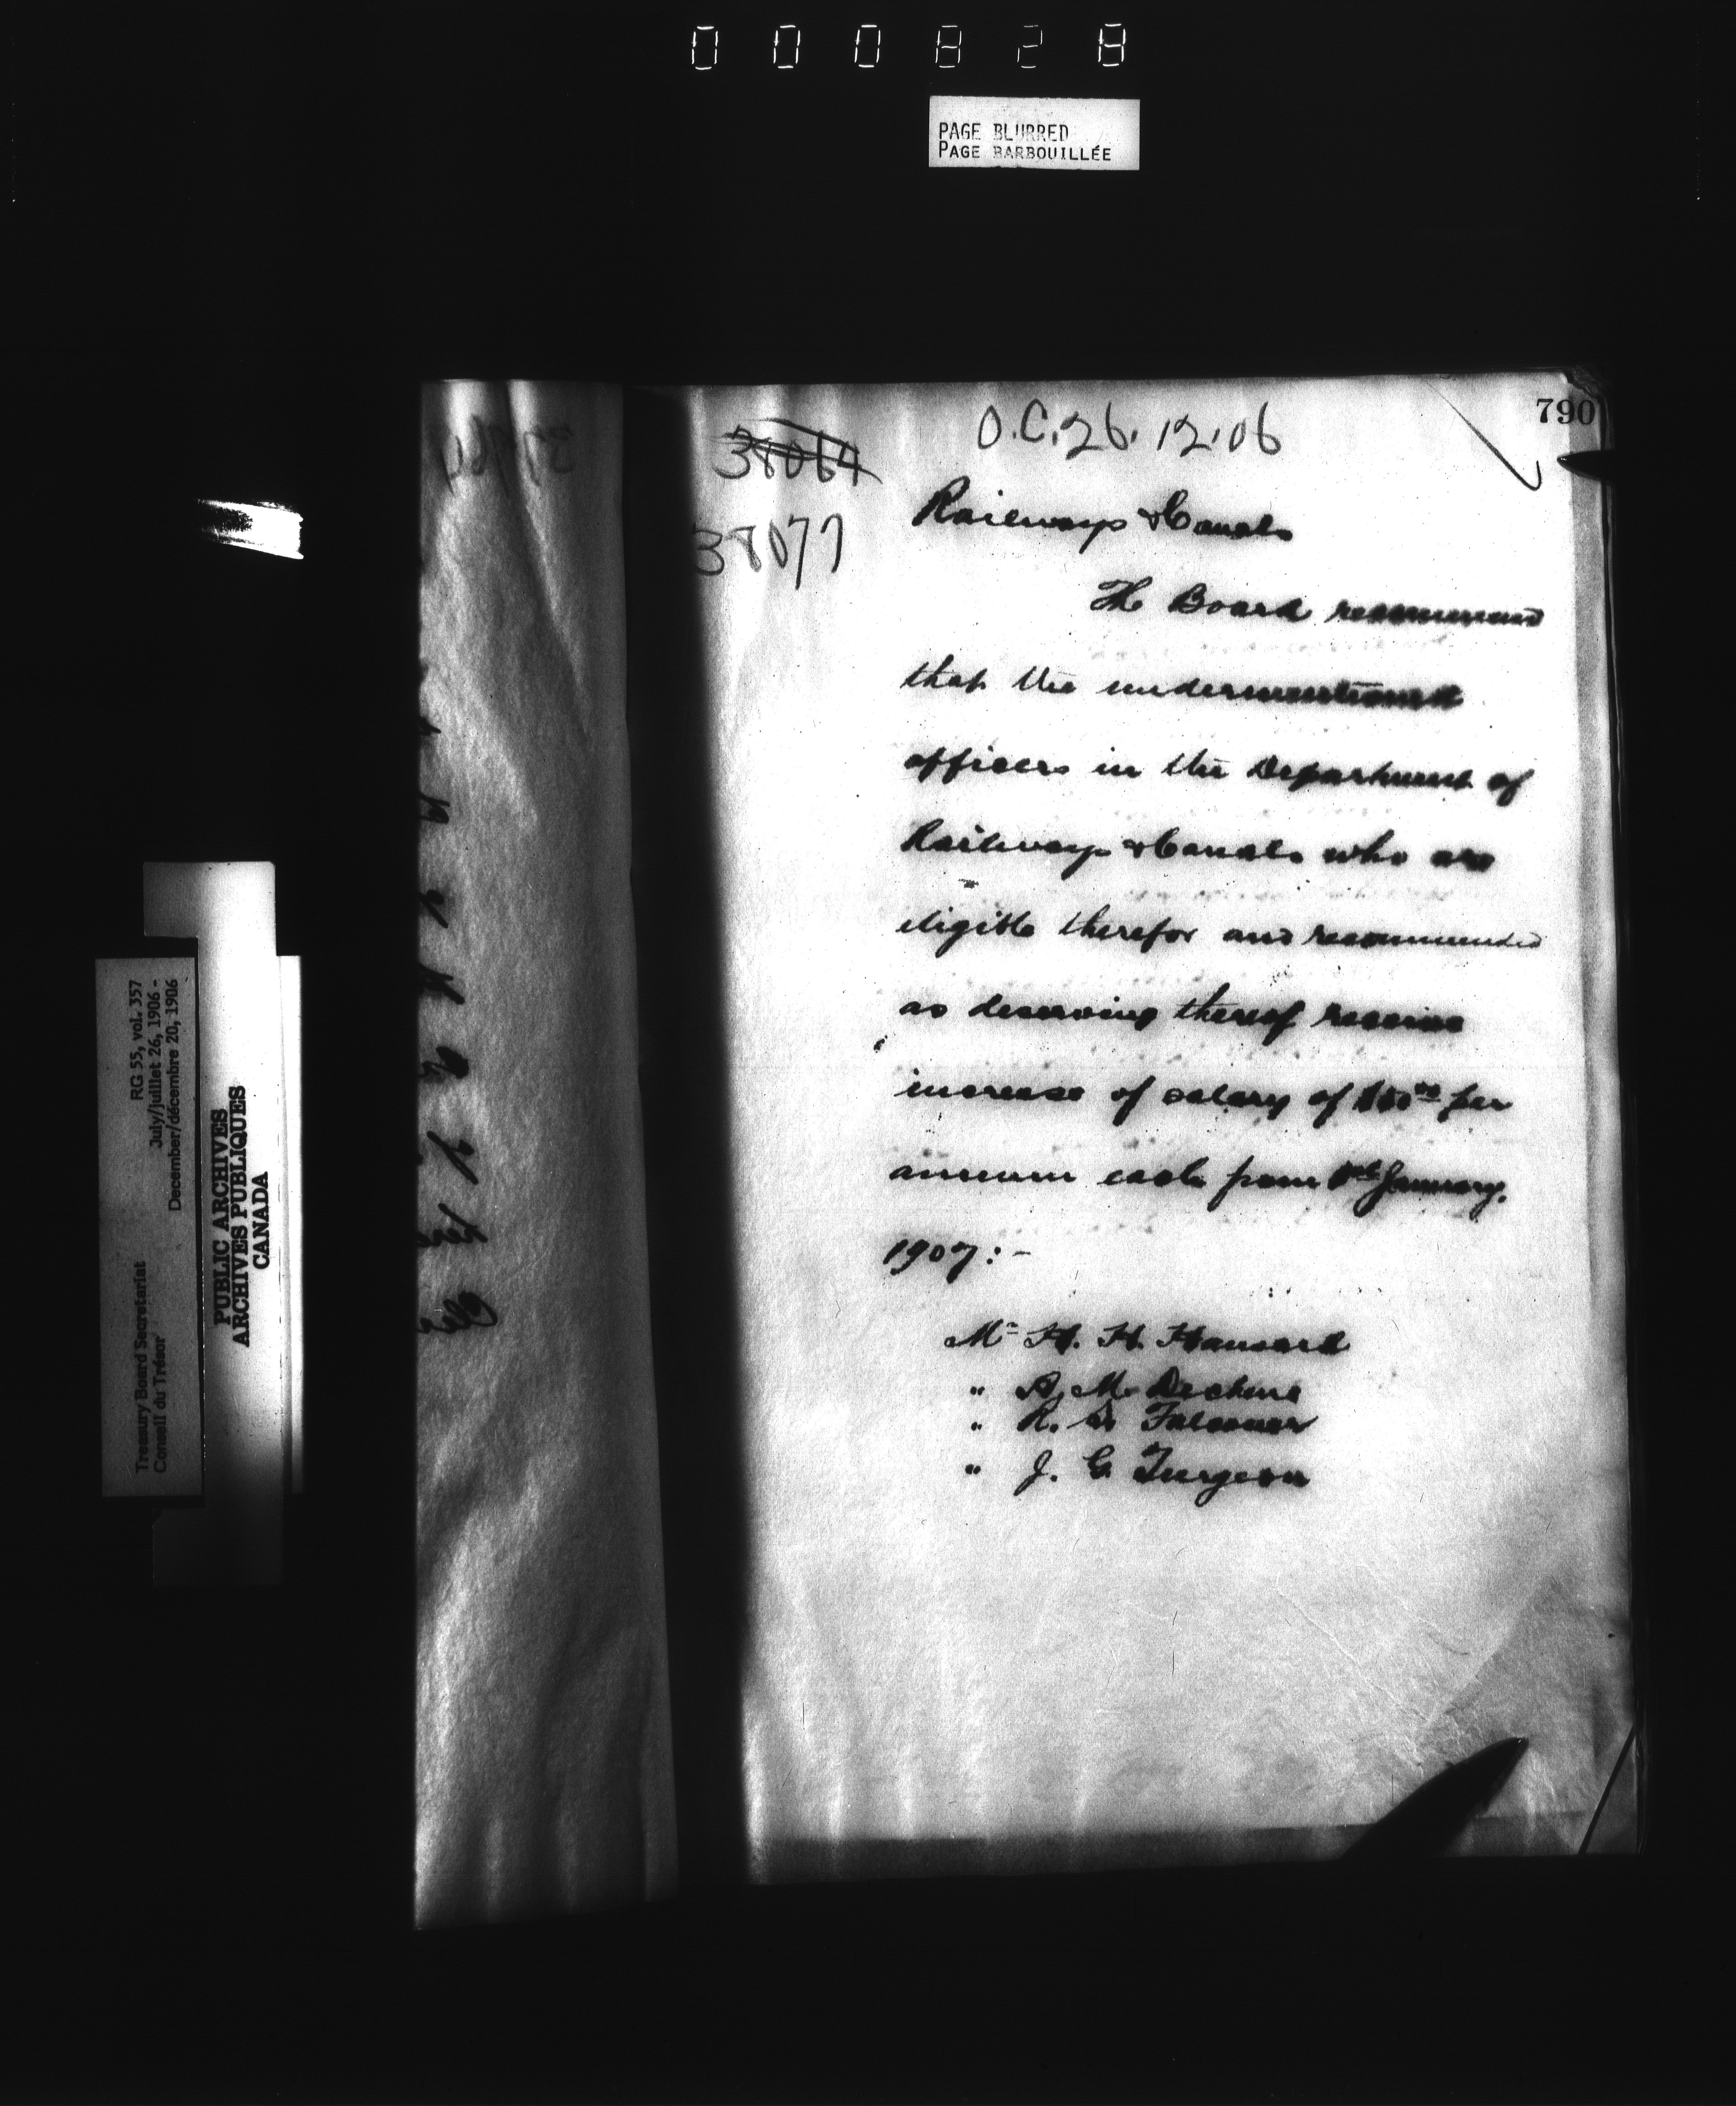 000828
PAGE BLURRED
PAGE BARBOUILLÉE
790
O.C. 26.12.06
38064
38077
Railways & Canals
The Board recommend
that the undermentioned
officers in the Department of
Railways & Canals who are
eligible therefor and recommended
as deserving thereof receive
increase of salary of per
annum each from 1st January,
1907:-
Mr H. H. Hansard
" A. M. Dechene
" R. Falconer
" J. G. Turgeon
RG 55, vol. 357
July/juillet 26, 1906 -
December/décembre 20, 1906
Treasury Board Secretariat
Conseil du Trésor
PUBLIC ARCHIVES
ARCHIVES PUBLIQUES
CANADA